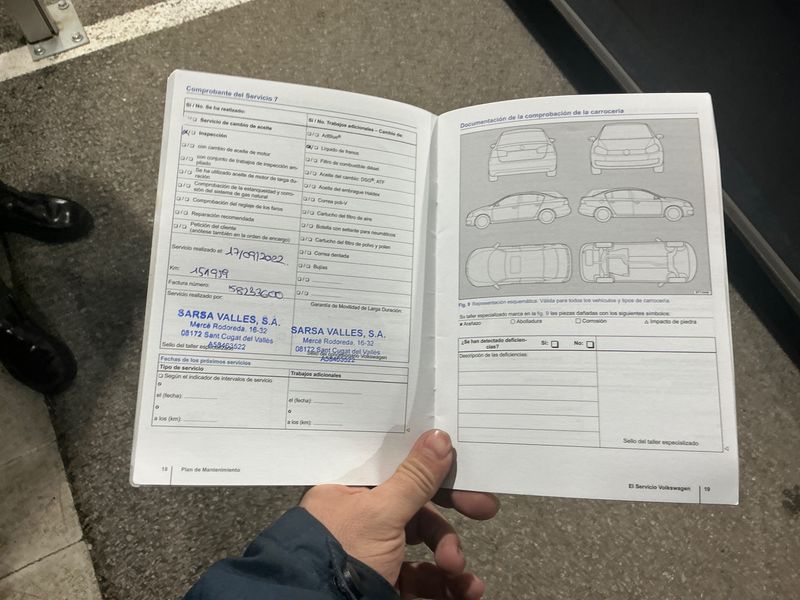 Comprobante del Servicio 7
Sí / No. Se ha realizado:
Servicio de cambio de aceite
Inspección
con cambio de aceite de motor
con conjunto de trabajos de inspección am-
pliado
Se ha utilizado aceite de motor de larga du-
ración
Comprobación de la estanqueidad y corro-
sión del sistema de gas natural
Comprobación del reglaje de los faros
Reparación recomendada
Petición del cliente
(anótese también en la orden de encargo)
Servicio realizado el: 17/09/2022
Km: 151919
Factura número: 58233600
Servicio realizado por:
SARSA VALLES, S.A.
Mercè Rodoreda, 16-32
08172 Sant Cugat del Vallès
A58463522
Sello del taller especializado
Sí / No. Trabajos adicionales – Cambio de:
AdBlue®
Líquido de frenos
Filtro de combustible diésel
Aceite del cambio: DSG®, ATF
Aceite del embrague Haldex
Correa poli-V
Cartucho del filtro de aire
Botella con sellante para neumáticos
Cartucho del filtro de polvo y polen
Correa dentada
Bujías
Garantía de Movilidad de Larga Duración:
SARSA VALLES, S.A.
Mercè Rodoreda, 16-32
08172 Sant Cugat del Vallès
A58463522
Volkswagen
Fechas de los próximos servicios
Tipo de servicio
Trabajos adicionales
Según el indicador de intervalos de servicio
o
el (fecha):
o
a los (km):
el (fecha):
o
a los (km):
18 Plan de Mantenimiento
Documentación de la comprobación de la carrocería
Fig. 9 Representación esquemática: Válida para todos los vehículos y tipos de carrocería.
Su taller especializado marca en la fig. 9 las piezas dañadas con los siguientes símbolos:
Arañazo Abolladura Corrosión Impacto de piedra
¿Se han detectado deficien-
cias? Sí: No:
Descripción de las deficiencias:
Sello del taller especializado
El Servicio Volkswagen 19